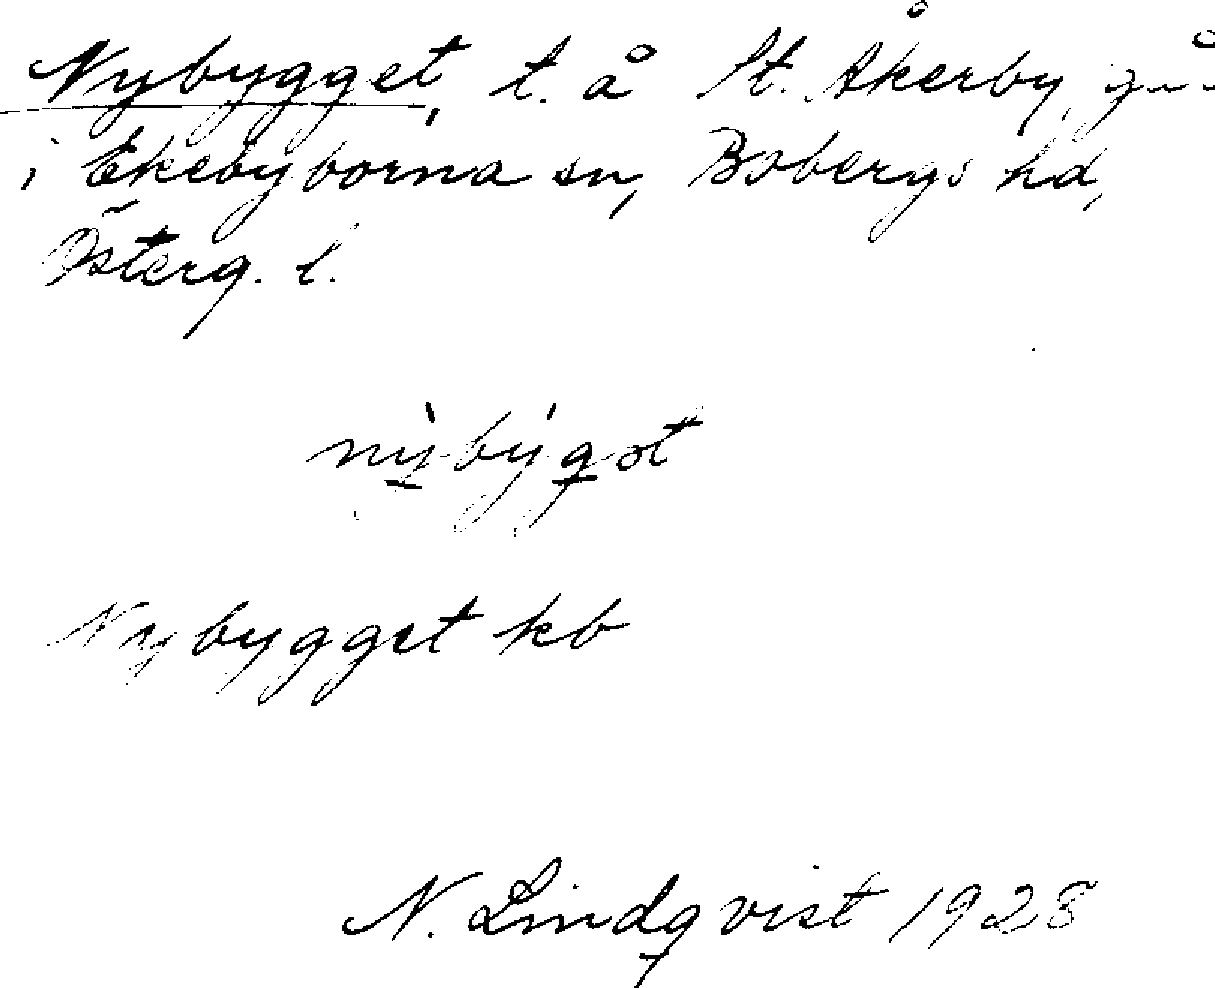 Nybygget, t. å St. Åkerby,
i Ekebyborna sn, Bobergs hd,
Österg. l.
Nybygget kb
N. Lindqvist 1928